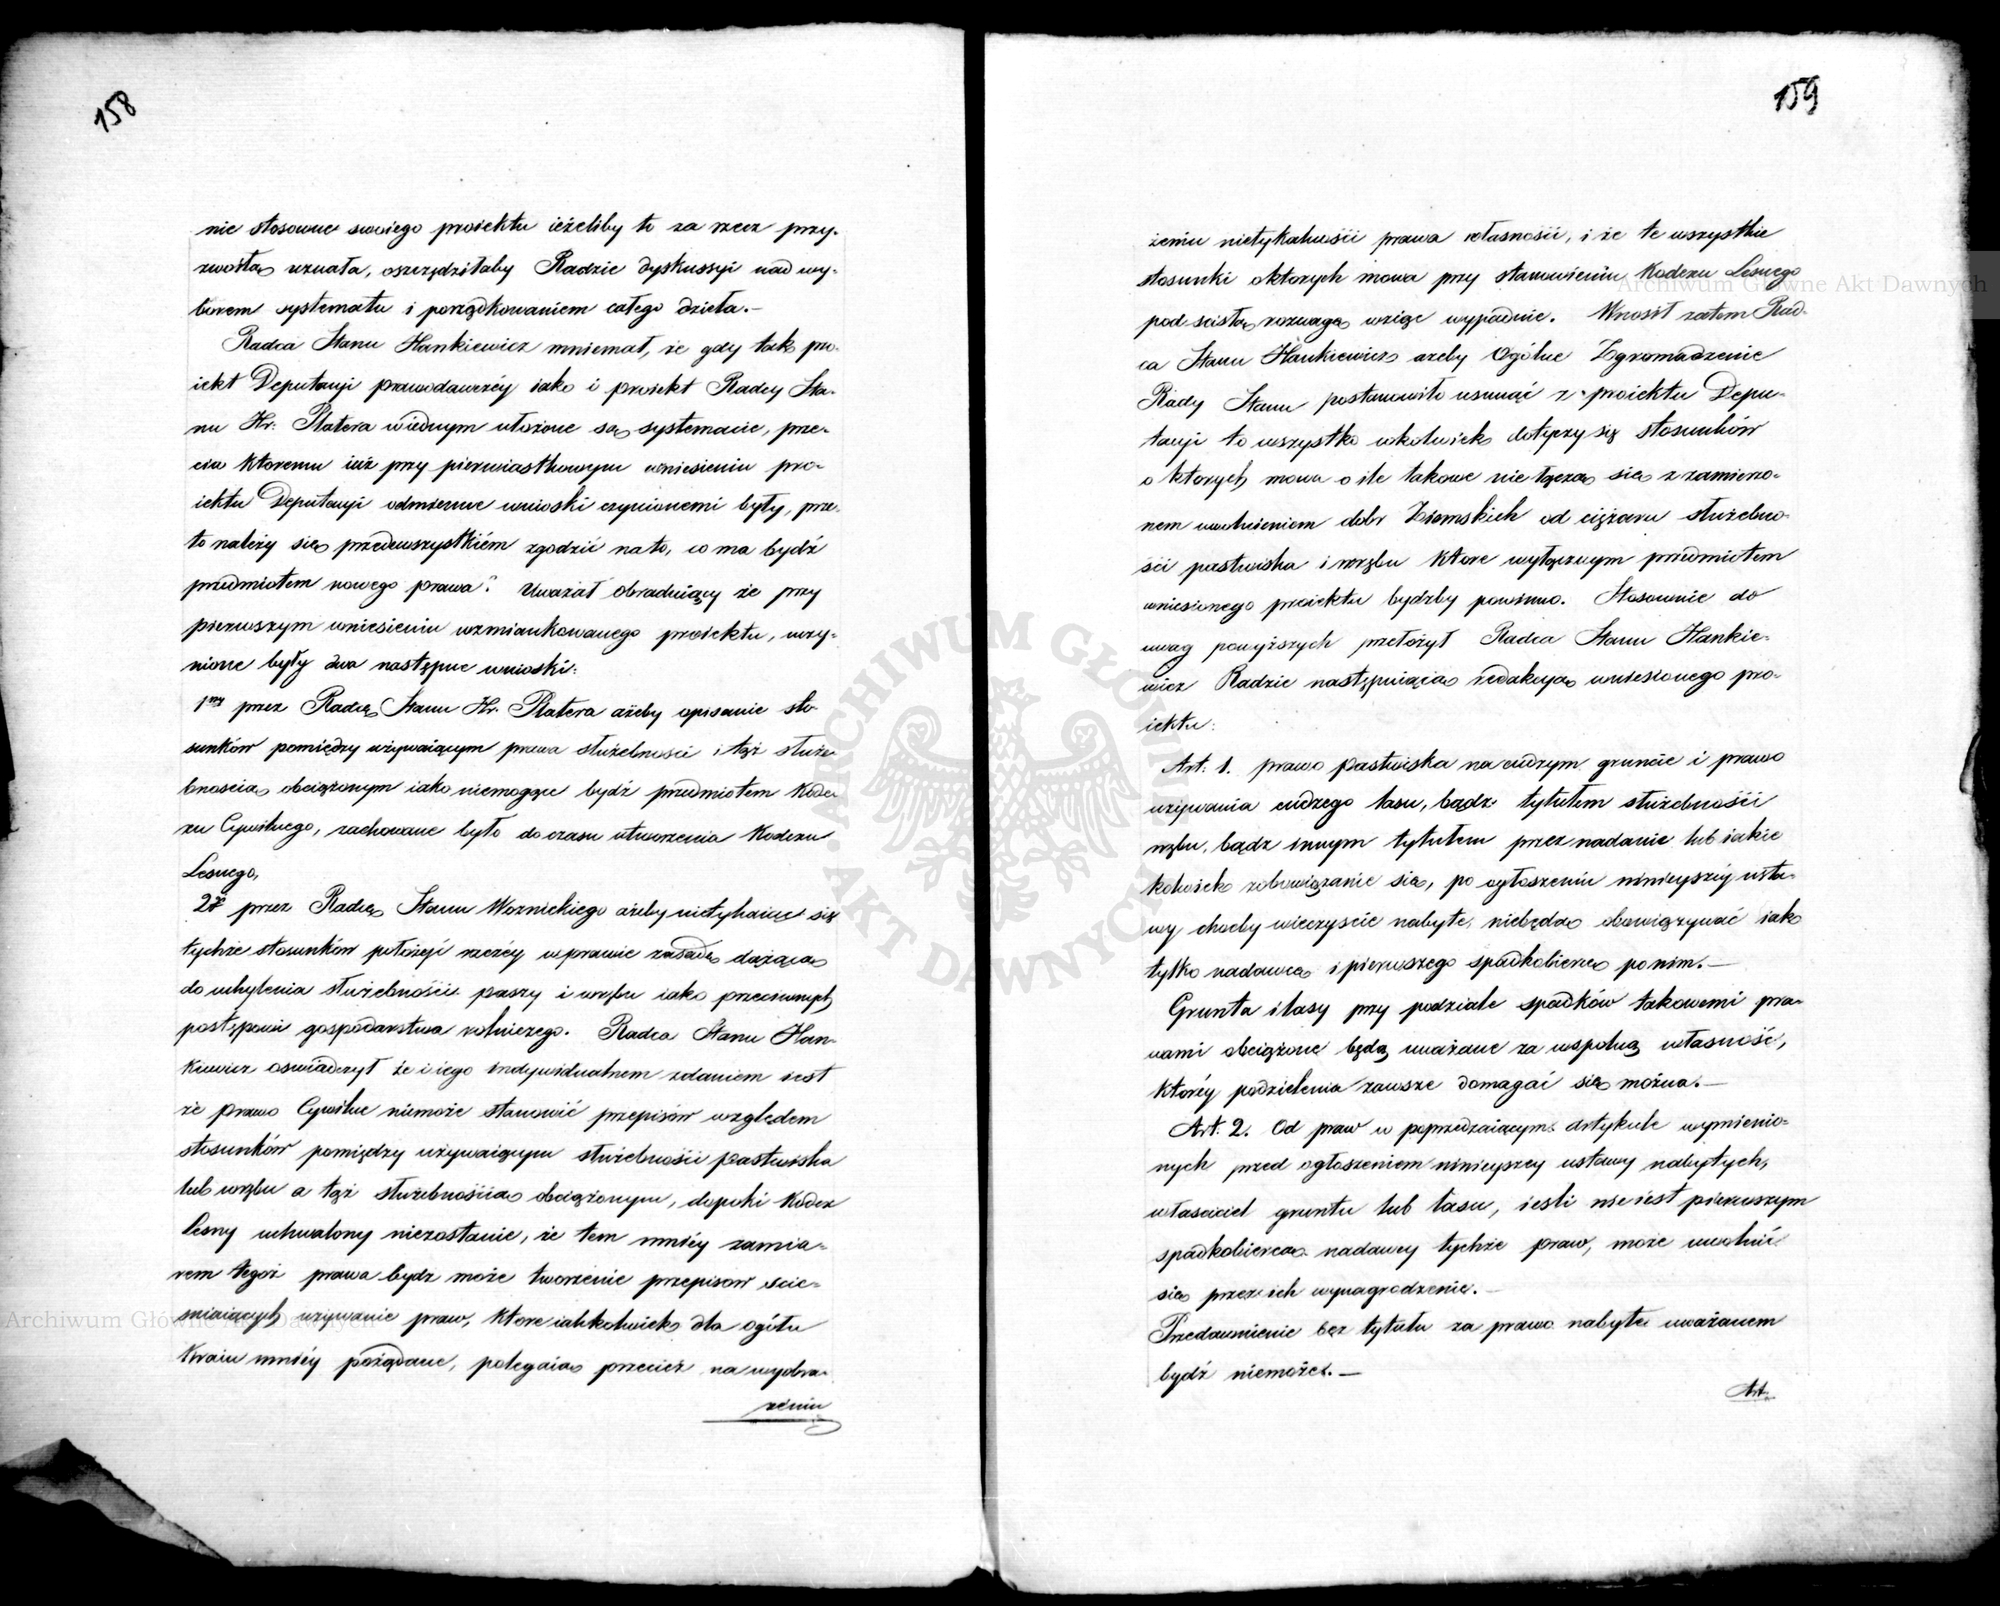 158
nie stosowne swoiego proiektu ieżeliby to za rzecz przy-
zwoitą uznała, oszczędziłaby Radzie dyskussyi nad wy-
borem systematu i porządkowaniem całego dzieła.—
Radca Stanu Hankiewicz mniemał, że gdy tak pro-
iekt Deputacyi prawodawczéy iako i proiekt Radcy Sta-
nu Hr: Platera w iednym ułożone są systemacie, prze-
ciw ktoremu iuż przy pierwiastkowym wniesieniu pro-
iektu Deputacyi odmienne wnioski czynionemi były, prze-
to należy się przedewszystkiém zgodzić na to, co ma bydź
przedmiotem nowego prawa? Uważał obraduiący że przy
pierwszym wniesieniu wzmiankowanego proiektu, uczy-
nione były dwa następne wnioski:
1szy przez Radcę Stanu Hr. Platera ażeby opisanie sto-
sunków pomiędzy używaiącym prawa służebności i tąż służe-
bnością obciążonym iako niemogące bydź przedmiotem Kode-
xu Cywilnego, zachowane było do czasu utworzenia Kodexu
Lesnego,
2gi przez Radcę Stanu Woznickiego ażeby nietykaiąc się
tychże stosunków położyć raczéy w prawie zasadę dążącą
do uchylenia służebności paszy i wrębu iako przeciwnych
postępowi gospodarstwa rolniczego. Radca Stanu Han-
kiewicz oswiadczył że i iego indywidualnem zdaniem iest
że prawo Cywilne niemoże stanowić przepisów względem
stosunków pomiędzy używaiącym służebności pastwiska
lub wrębu a tąż służebnością obciążonym, dopoki Kodex
Lesny uchwalony niezostanie, że tem mniéy zamia-
rem tegoż prawa bydz może tworzenie przepisow scie-
sniaiących używanie praw, ktore iakkolwiek dla ogółu
Kraiu mniéy pożądane, polegaią przecież na wyobra-
żeniu
159
żeniu nietykalności prawa własności, i że te wszystkie
stosunki o ktorych mowa przy stanowieniu Kodexu Lesnego
pod scisłą rozwagę wziąc wypadnie. Wnosił zatem Rad-
ca Stanu Hankiewicz ażeby Ogólne Zgromadzenie
Rady Stanu postanowiło usunąć z proiektu Depu-
tacyi to wszystko cokolwiek dotyczy się stosunków
o ktorych mowa o ile takowe nie łączą się z zamierzo-
nem uwolnieniem dobr Ziemskich od ciężaru służebno-
ści pastwiska i wrębu ktore wyłącznym przedmiotem
wniesionego proiektu bydźby powinno. Stosownie do
uwag powyższych przełożył Radca Stanu Hankie-
wicz Radzie następuiącą redakcyą wniesionego pro-
iektu:
Art: 1. prawo pastwiska na cudzym gruncie i prawo
używania cudzego lasu, bądz tytułem służebności
wrębu, bądz innym tytułem przez nadanie lub iakie
kolwiek zobowiązanie się, po ogłoszeniu ninieyszéy usta-
wy choćby wieczyscie nabyte, niebędą obowiązywać iak
tylko nadawcę i pierwszego spadkobiercę po nim.—
Grunta i lasy przy podziale spadków takowemi pra-
wami obciążone będą uważane za wspolną własność,
któréy podzielenia zawsze domagać się można.—
Art: 2. Od praw w poprzedzaiącym artykule wymienio-
nych przed ogłoszeniem ninieyszey ustawy nabytych,
własciciel gruntu lub lasu, iesli nie iest pierwszym
spadkobiercą nadawcy tychże praw, może uwolnić
się przez ich wynagrodzenie.—
Przedawnienie bez tytułu za prawo nabyte uważanem
bydź niemoże.—
Art.